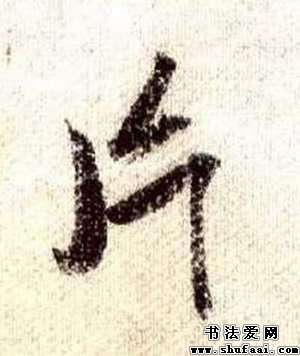 片
书法爱网
www.shufaai.com